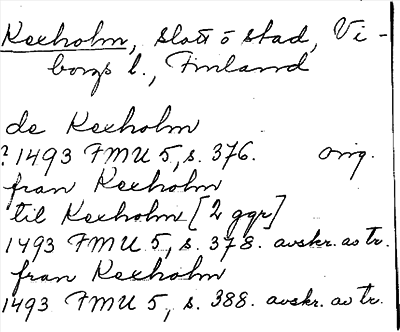 Kexholm, slott o stad, Vi-
borgs l., Finland
de Kexholm
? 1493 FMU 5, s. 376. orig.
fran Kexholm
til Kexholm [2 ggr]
1493 FMU 5, s. 378. avskr. av tr.
fran Kexholm
1493 FMU 5, s. 388. avskr. av tr.